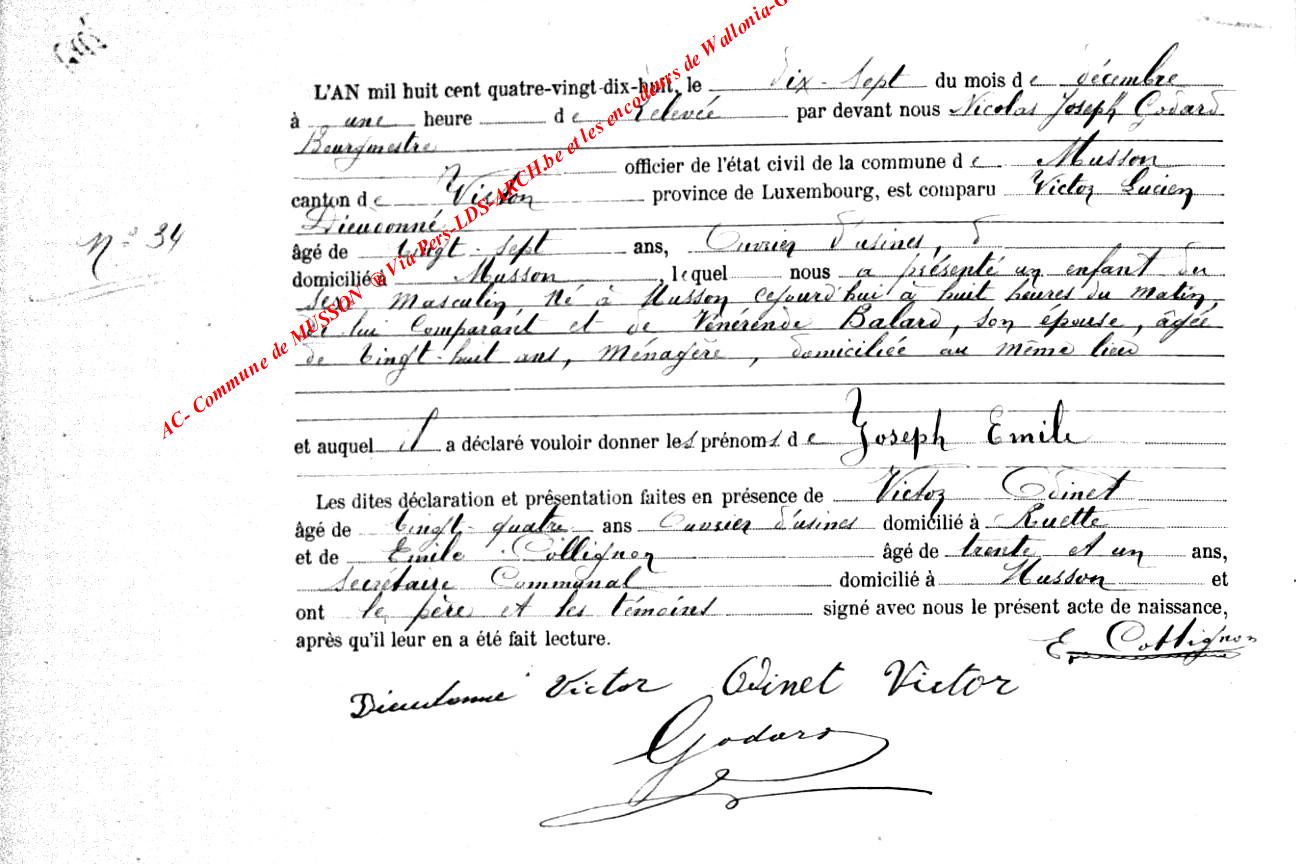 L'AN mil huit cent quatre-vingt-dix-huit, le dix-sept du mois de décembre
à une heure de relevée par devant nous Nicolas Joseph Godard
Bourgmestre
officier de l'état civil de la commune de Musson
canton de Virton province de Luxembourg, est comparu Victor Lucien
Dieudonné
âgé de vingt-sept ans, Ouvrier d'usines,
N° 34
domicilié à Musson, lequel nous a présenté un enfant du
sexe masculin, né à Musson cejourd'hui à huit heures du matin,
de lui comparant et de Vénérende Balard, son épouse, âgée
de vingt-huit ans, Ménagère, domiciliée au même lieu
et auquel il a déclaré vouloir donner les prénoms de Joseph Emile
Les dites déclaration et présentation faites en présence de Victor Odinet
âgé de vingt-quatre ans Ouvrier d'usines domicilié à Ruette
et de Emile Collignon âgé de trente et un ans,
Secrétaire Communal domicilié à Musson et
ont le père et les témoins signé avec nous le présent acte de naissance,
après qu'il leur en a été fait lecture.
E. Collignon
Dieudonné Victor Odinet Victor
Godard
AC- Commune de MUSSON @Via Pers-LDS-ARCH.be et les encodeurs de Wallonia-G